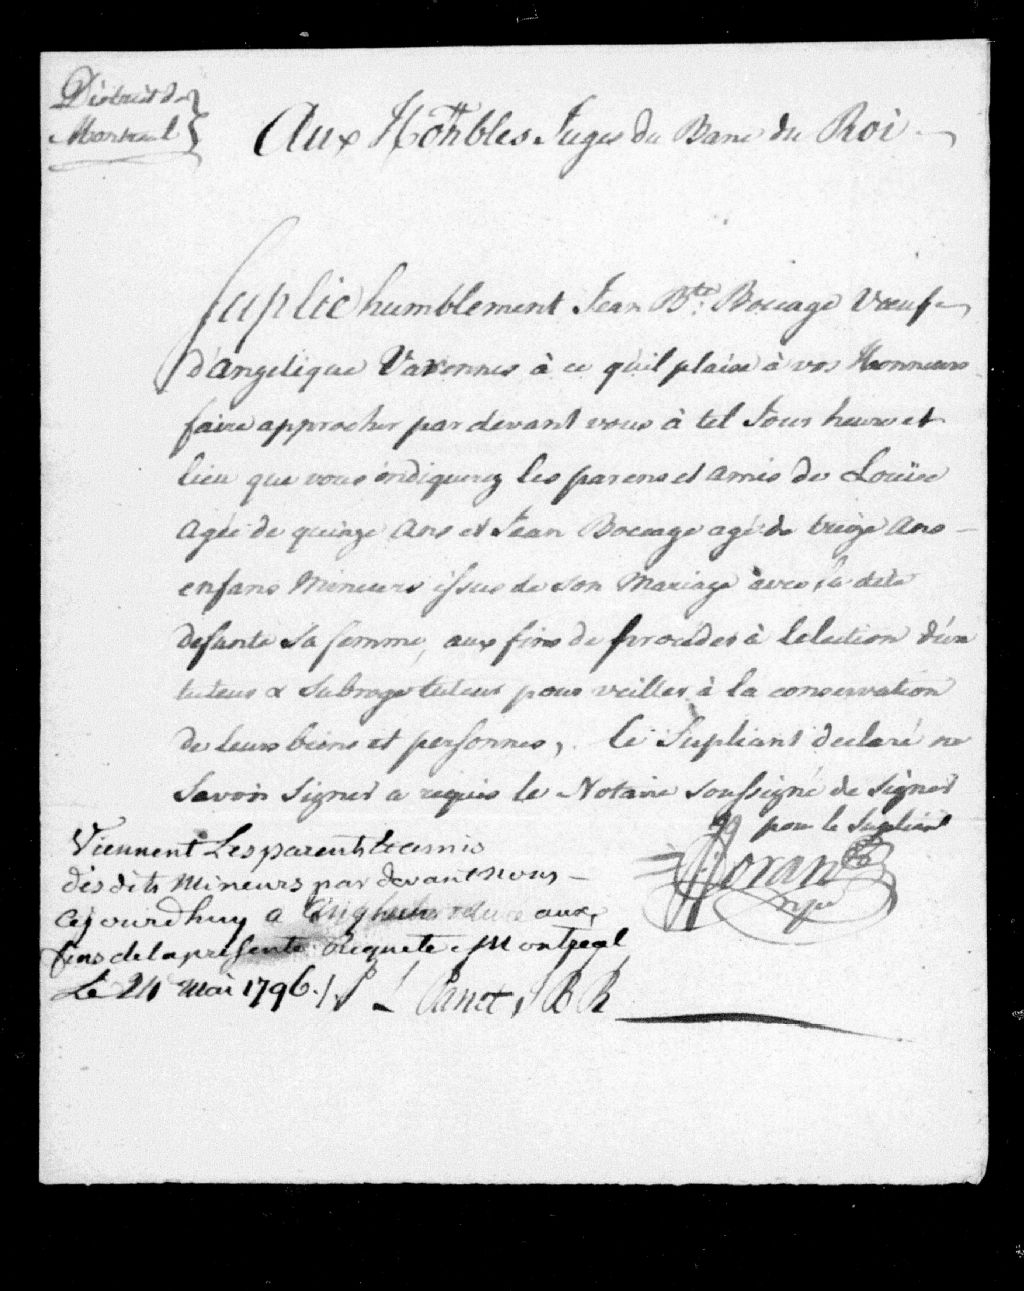 District de
Montreal
Aux Honbles Juges du Banc du Roi
Suplie humblement Jean Bte. Boccage Vœuf
d'angelique Varonnes à ce qu'il plaise à vos Honneurs
faire approcher par devant vous à tel Jour heure et
lieu que vous indiquerez les parens et amis de Louïse
agée de quinze ans et Jean Boccage agé de treize ans
enfans Mineurs issus de son Mariage avec la dite
defunte sa femme, aux fins de proceder à lelection d'un
tuteur & Subroge tuteur pour veiller à la conservation
de leurs biens et personnes, le Supliant declaré ne
savoir signer a requis le Notaire soussigné de signer
pour le Supliant
Viennent Les parents & amis
desdits Mineurs par devant nous
Cejourdhuy a heure aux
fins de la presente Requete Montreal
Le 24 Mai 1796. /. P L Panet J B R